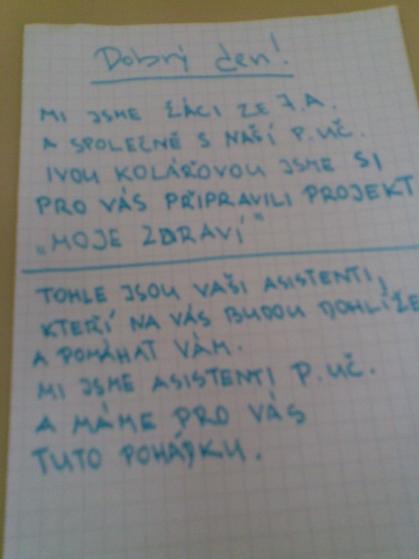 Dobrý den!
MI JSME ŽÁCI ZE 7.A.
A SPOLEČNĚ S NAŠÍ P.UČ.
IVOU KOLÁŘOVOU JSME SI
PRO VÁS PŘIPRAVILI PROJEKT
„MOJE ZDRAVÍ"
TOHLE JSOU VAŠI ASISTENTI,
KTEŘÍ NA VÁS BUDOU DOHLÍŽE
A POMÁHAT VÁM.
MI JSME ASISTENTI P.UČ.
A MÁME PRO VÁS
TUTO POHÁDKU.